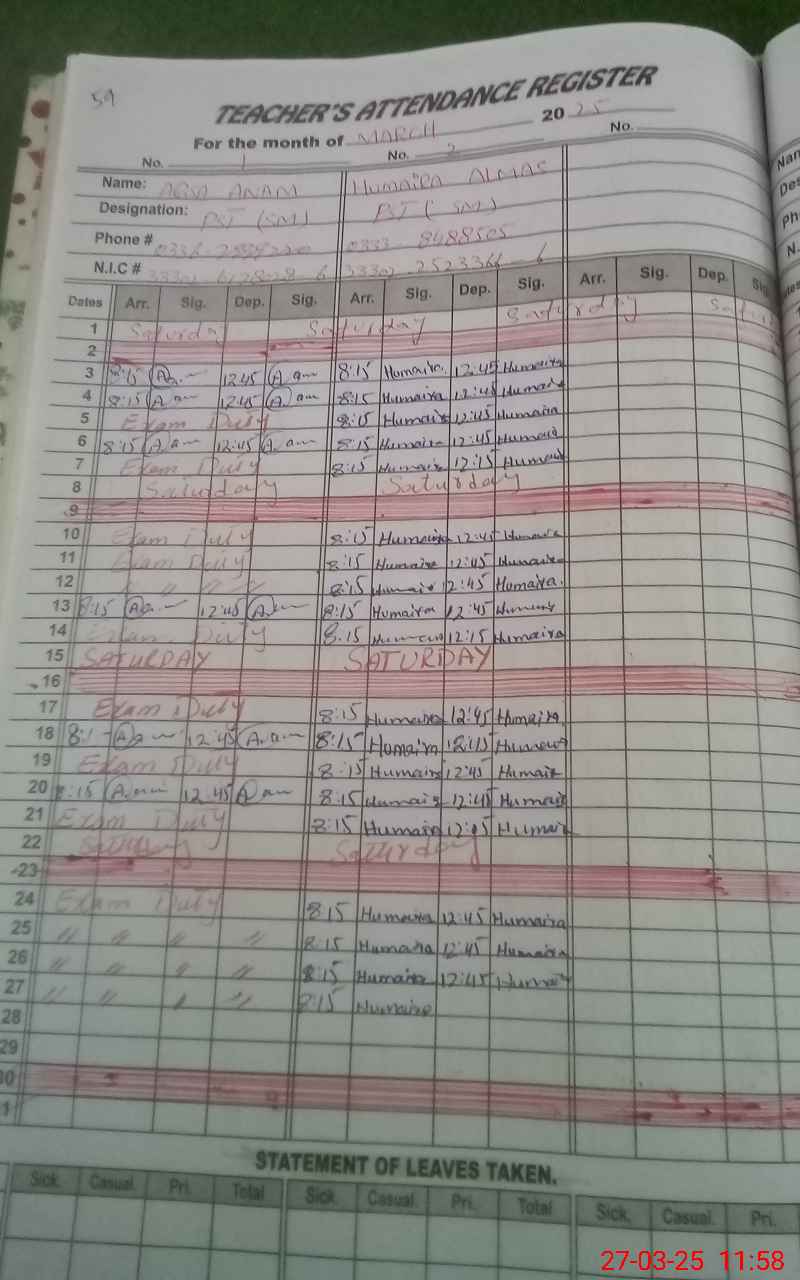 59
TEACHER'S ATTENDANCE REGISTER
For the month of MARCH 2025
No. 1 No. 2 No.
Name: AQSA ANAM HUMAIRA ALMAS
Designation: PST (SM) PST (SM)
Phone # 0333-8488505
N.I.C # 33302-2523366-6
Dates Arr. Sig. Dep. Sig. Arr. Sig. Dep. Sig. Arr. Sig. Dep. Sig
1 Saturday Saturday Saturday
2
3 8:15 12:45 8:15 Humaira 12:45 Humaira
4 8:15 12:45 8:15 Humaira 12:45 Humaira
5 Exam Duty 8:15 Humaira 12:45 Humaira
6 8:15 12:45 8:15 Humaira 12:45 Humaira
7 Exam Duty 8:15 Humaira 12:15 Humaira
8 Saturday Saturday
9
10 Exam Duty 8:15 Humaira 12:45 Humaira
11 Exam Duty 8:15 Humaira 12:45 Humaira
12 〃 〃 〃 〃 8:15 Humaira 12:45 Humaira.
13 8:15 12:45 8:15 Humaira 12:45 Humaira
14 Exam Duty 8:15 Humaira 12:15 Humaira
15 SATURDAY SATURDAY
16
17 Exam Duty 8:15 Humaira 12:45 Humaira
18 12:45 8:15 Humaira Humaira
19 Exam Duty 8:15 Humaira 12:45 Humaira
20 8:15 12:45 8:15 Humaira 12:45 Humaira
21 Exam Duty 8:15 Humaira Humaira
22 Saturday Saturday
23
24 Exam Duty 8:15 Humaira 12:45 Humaira
25 〃 〃 〃 〃 8:15 Humaira 12:45 Humaira
26 〃 〃 〃 〃 8:15 Humaira 12:45 Humaira
27 〃 〃 〃 〃 8:15 Humaira
28
29
30
31
STATEMENT OF LEAVES TAKEN.
Sick. Casual. Pri. Total Sick. Casual. Pri. Total Sick. Casual. Pri.
27-03-25 11:58